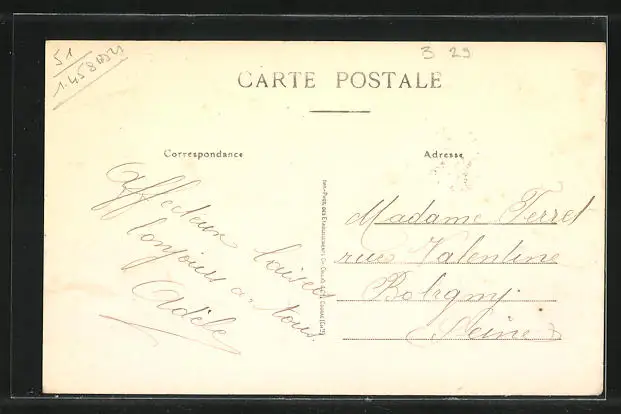 51
1.458
3 29
CARTE POSTALE
Correspondance
Adresse
Affectueux baisers
bonjour a tous.
Adèle
Madame Ferret
rue Valentine
Bobigny
Seine